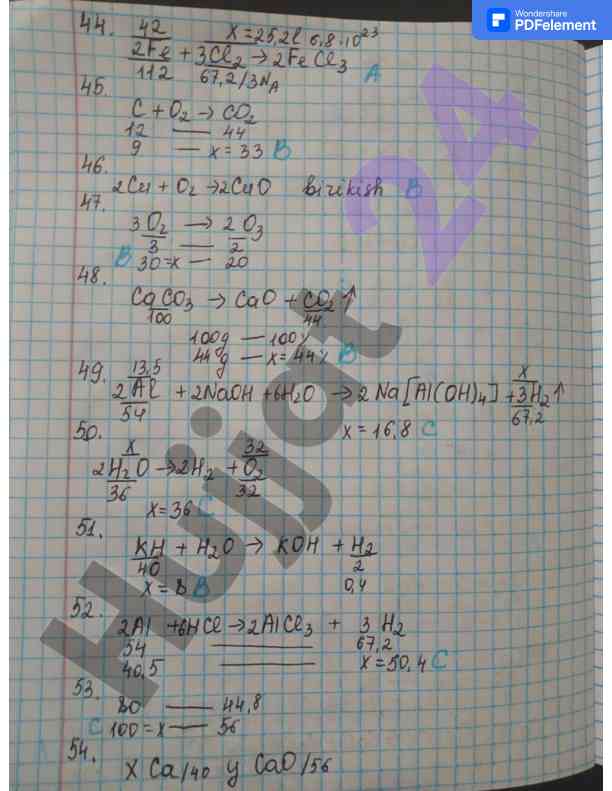 Wondershare
PDFelement
44. 42 x=25,2l 6,8·10²³
2Fe + 3Cl₂ → 2FeCl₃
112 67,2/3Nᴀ A
45.
C + O₂ → CO₂
12 — 44
9 — x = 33 B
46.
2Cu + O₂ → 2CuO birikish B
47.
3O₂ → 2O₃
3 — 2
B 30=x — 20
48.
CaCO₃ → CaO + CO₂↑
100 44
100g — 100%
44g — x=44% B
49. 13,5 x
2Al + 2NaOH + 6H₂O → 2Na[Al(OH)₄] + 3H₂↑
54 67,2
50. x = 16,8 C
x 32
2H₂O → 2H₂ + O₂
36 32
x=36 C
51.
KH + H₂O → KOH + H₂
40 2
x=8 B 0,4
52.
2Al + 6HCl → 2AlCl₃ + 3H₂
54 — 67,2
40,5 — x=50,4 C
53.
80 — 44,8
C 100=x — 56
54.
x Ca/40 y CaO/56
Hujjat 24